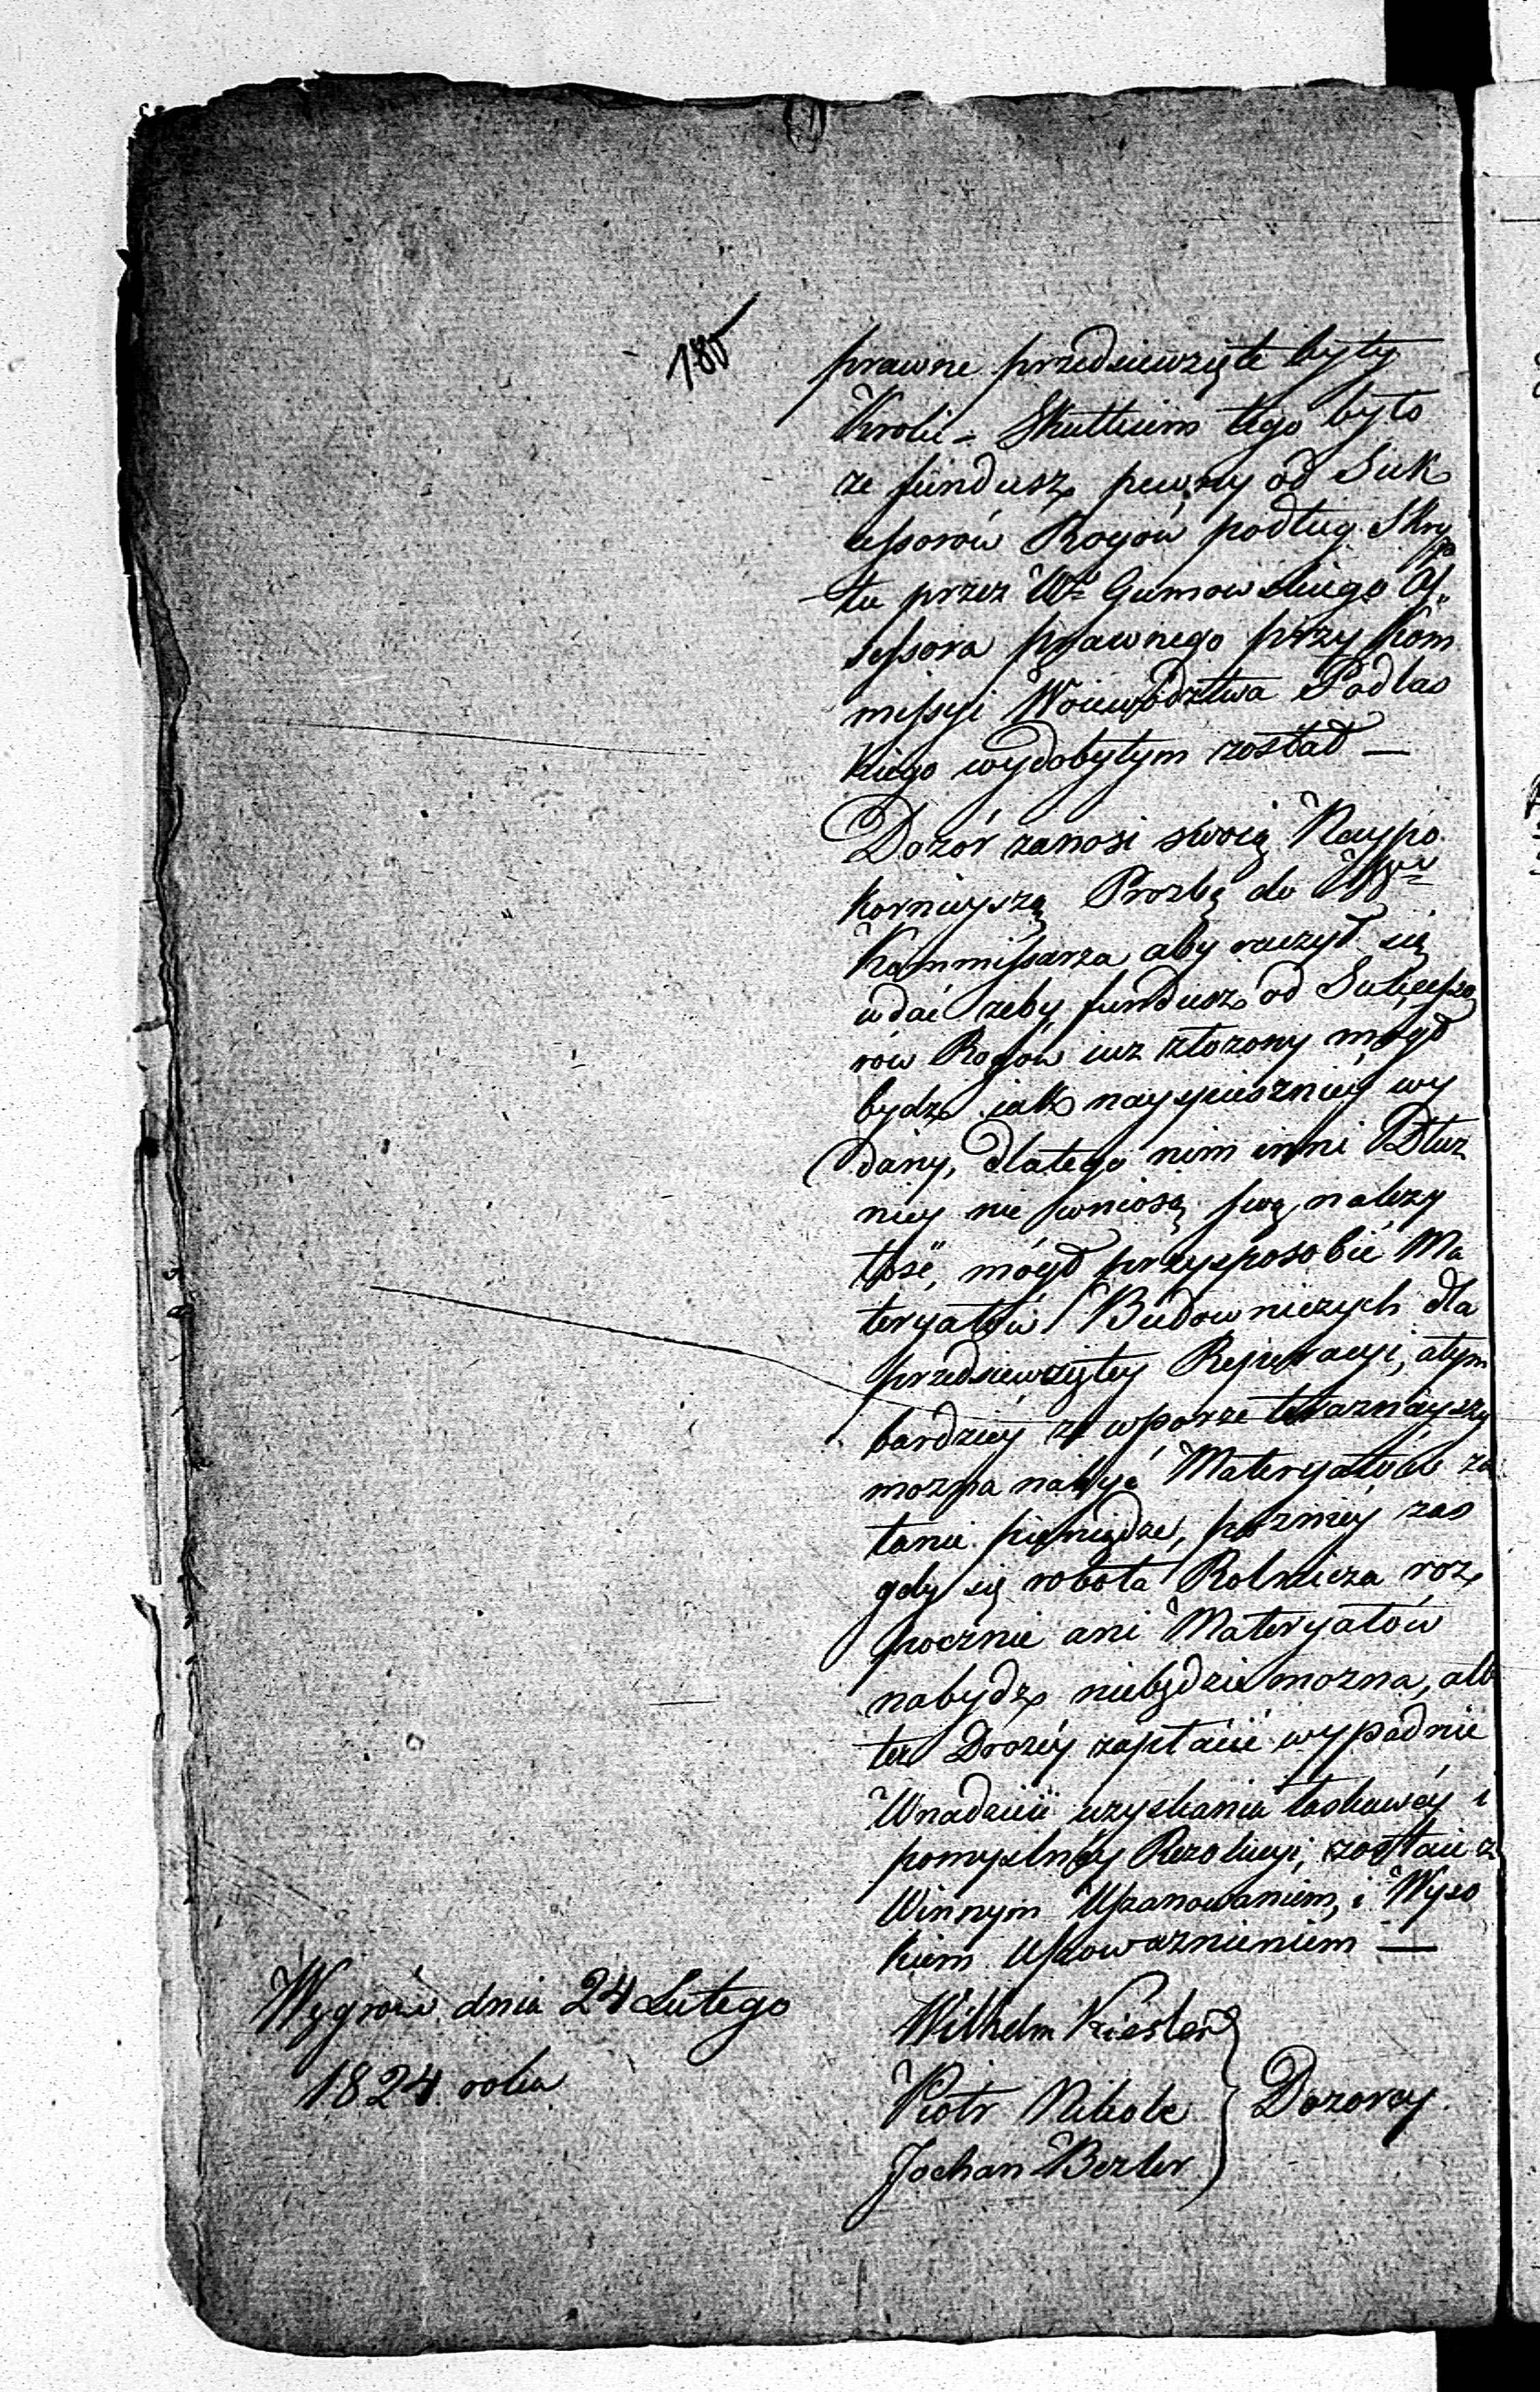 185
prawne przedsiewzięte były
Kroki – Skutkiem tego było
ze fundusz pewny od Suk
cessorów Rogów podług Skryp
tu przez Wº Gumowskiego As
sessora prawnego przy Kom
missyi Woiewództwa Podlas
kiego wydobytym został —
Dozór zanosi swoią Naypo
kornieyszą Prozbę do WW
Kommissarza aby raczył się
wdać zeby fundusz od Sukcesso
rów Rogów iuz złozony mógł
bydz iak nayspieszniey wy
dany, dlatego nim inni Dłuz
nicy nie wniosą swą nalezy
tość, mógł przysposobić Ma
teryałów Budowniczych dla
przedsiewziętey Reperacyi, atym
bardziey ze wporze terazniéyszy
mozna nabyć Materyałów za
tanie pieniądze, pozniey zas
gdy się robota Rolnicza roz
pocznie ani Materyałów
nabydz niebędzie mozna, alb
tez Drozéy zapłacić wypadnie
Wnadzieii uzyskania łaskawéy i
pomyslnéy Rezolucyi, zostaie z
Winnym Uszanowaniem, i Wyso
kiem Uszowaznieniem —
Węgrów dnia 24 Lutego
1824 roku
Wilhelm Kiesler
Piotr Nikole
Jochan Bezler
Dozorcy.